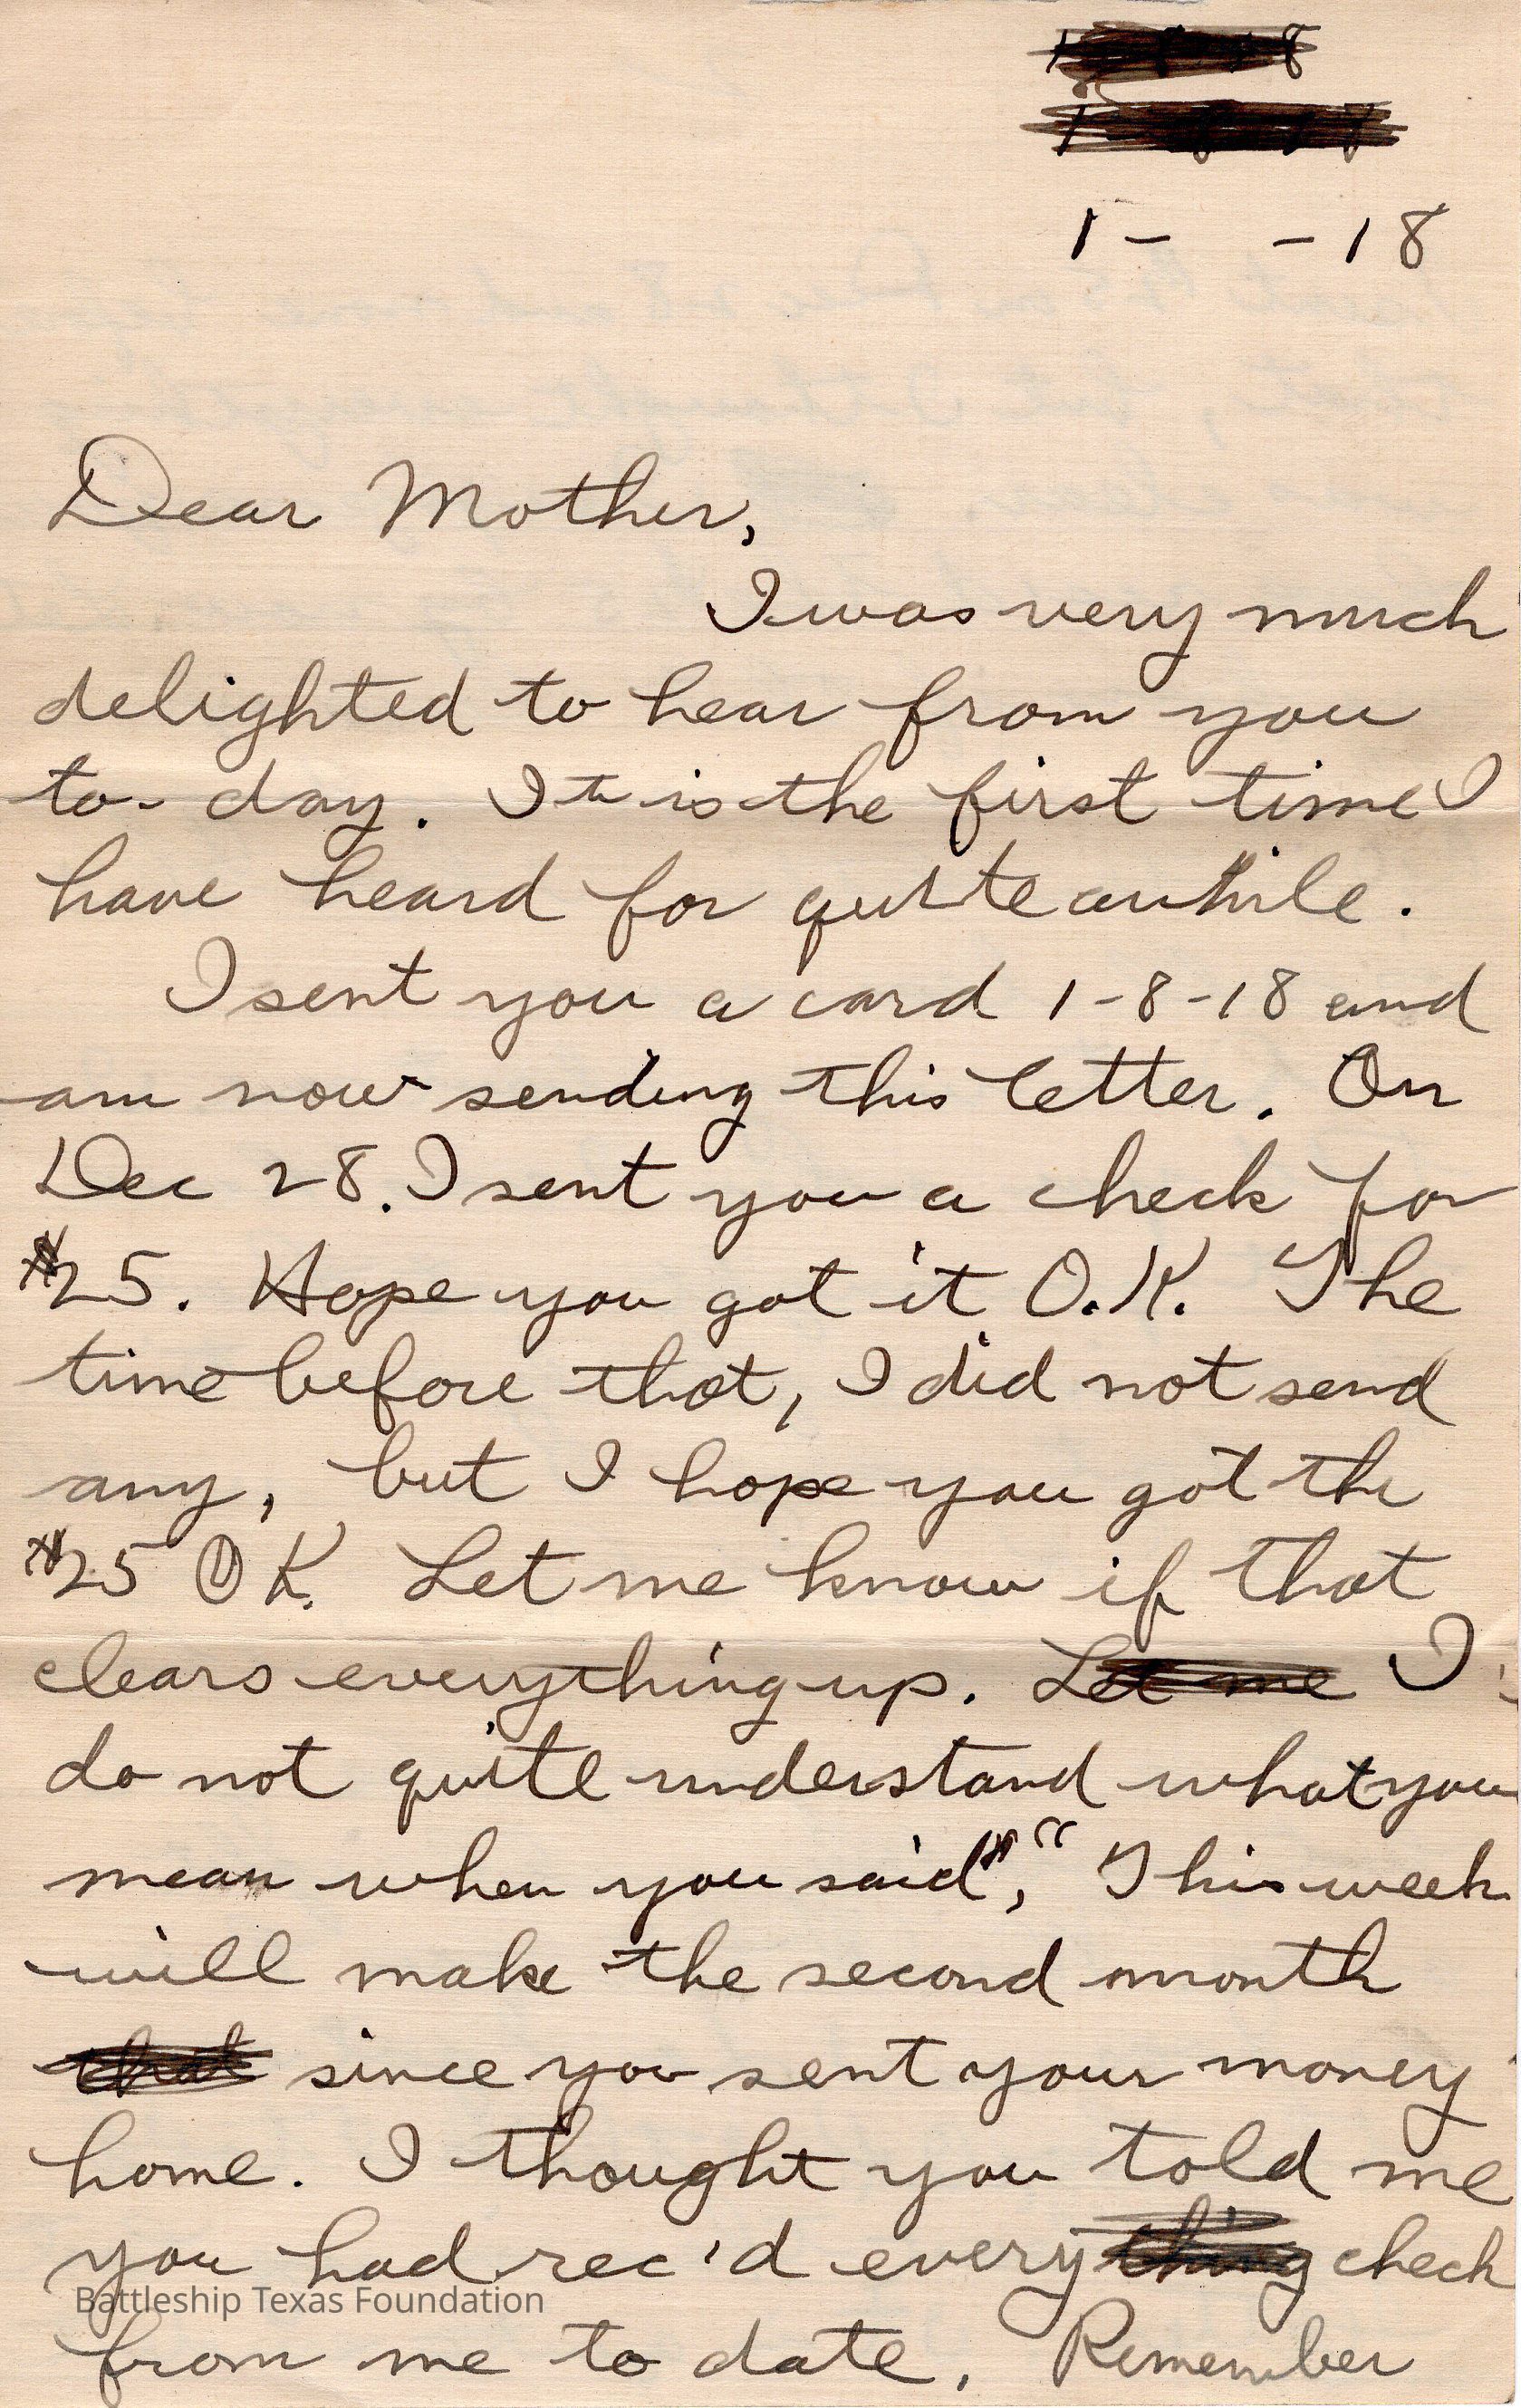 1- -18
Dear Mother,
I was very much
delighted to hear from you
to-day. It is the first time I
have heard for quite awhile.
I sent you a card 1-8-18 and
am now sending this letter. On
Dec 28. I sent you a check for
$25. Hope you got it O.K. The
time before that, I did not send
any, but I hope you got the
$25 OK. Let me know if that
clears everything up. Let me I
do not quite understand what you
mean when you said, "This week
will make the second month
that since you sent your money
home. I thought you told me
you had rec'd everything check
from me to date. Remember
Battleship Texas Foundation